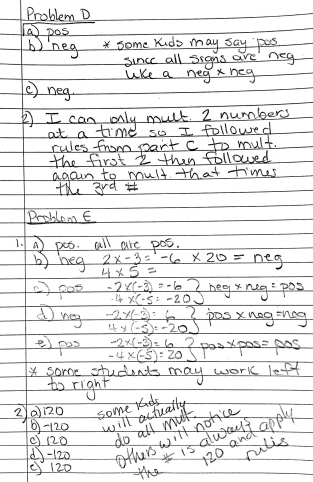 Problem D
1a) pos
b) neg * some kids may say pos
since all signs are neg
like a neg x neg
c) neg.
2) I can only mult. 2 numbers
at a time so I followed
rules from part C to mult.
the first 2 then followed
again to mult. that times
the 3rd #
Problem E
1. a) pos. all are pos.
b) neg 2 x -3 = -6 x 20 = neg
4 x 5 =
c) pos -2x(-3) = -6 } neg x neg = pos
4 x (-5 = -20
d) neg -2x(-3) = 6 } pos x neg = neg
4 x (-5) = -20
e) pos -2x(-3) = 6 } pos x pos = pos
-4 x (-5) = 20
* some students may work left
to right
2) a) 120 some kids
b) -120 will actually
c) 120 do all mult.
d) -120 Others will notice
e) 120 the # is always 120 and apply
rules